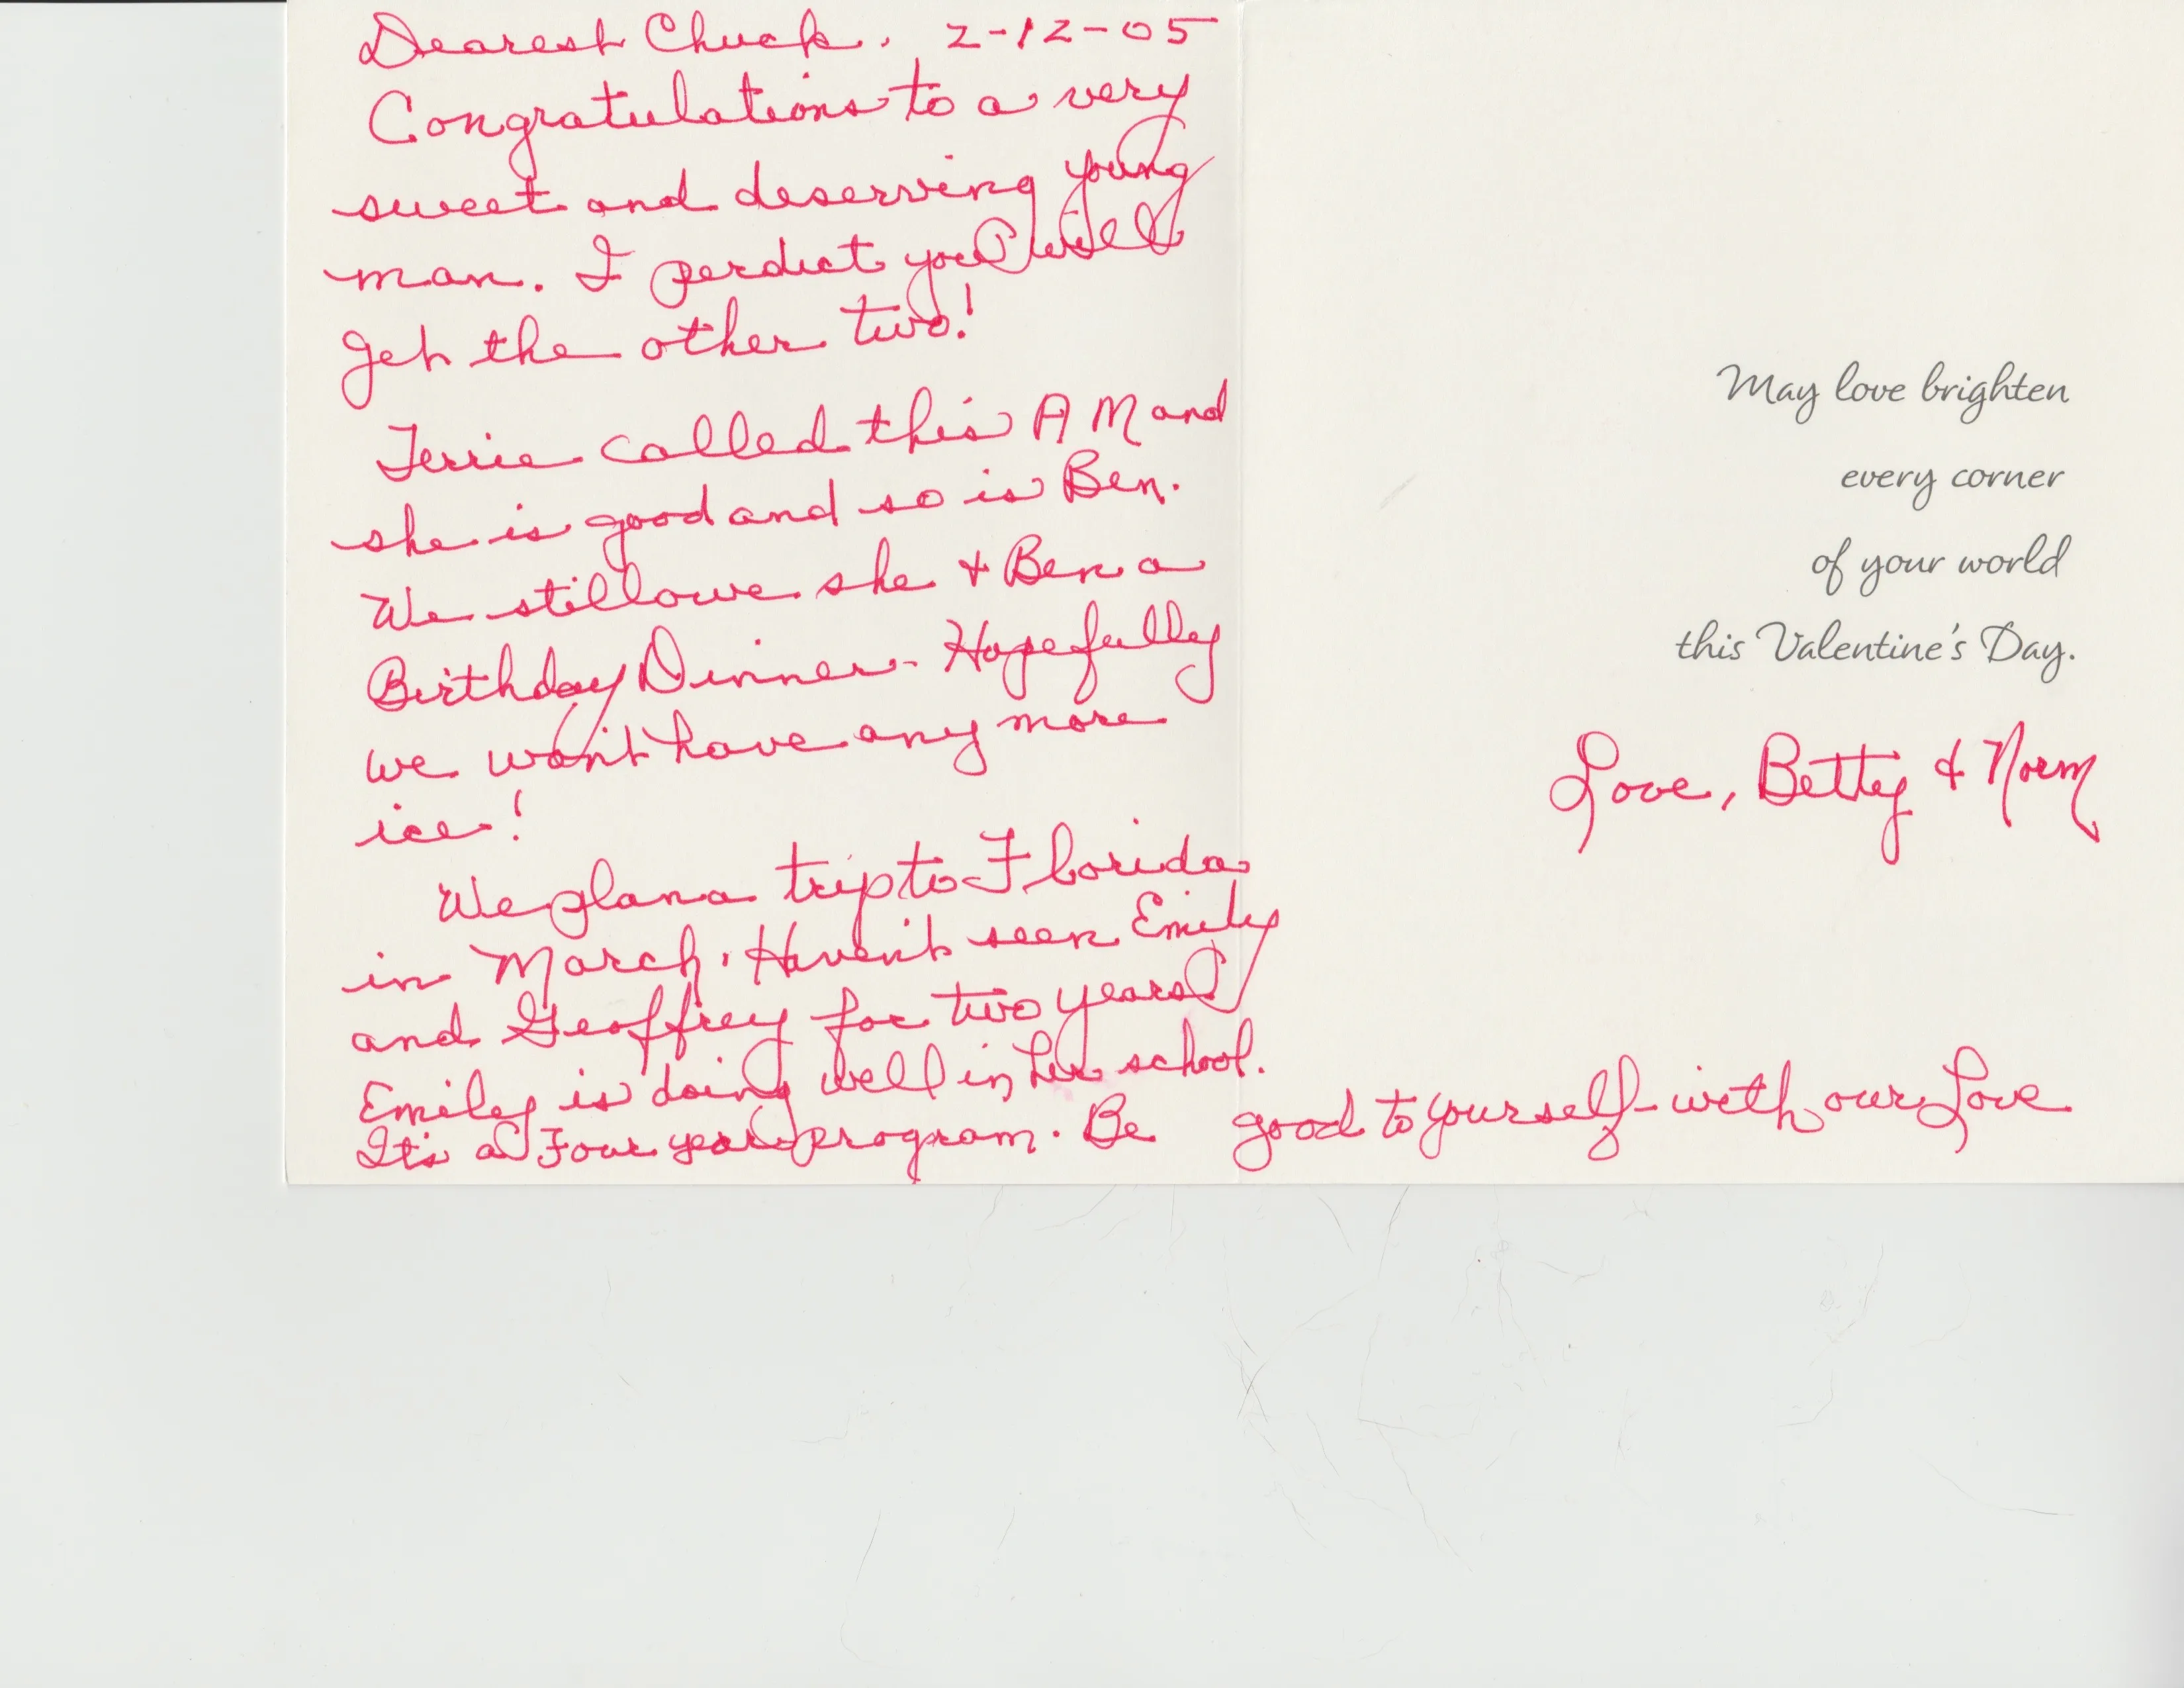 Dearest Chuck, 2-12-05
Congratulations to a very
sweet and deserving young
man. I perdict you will
get the other two!
Terrie called this AM and
she is good and so is Ben.
We still owe she + Ben a
Birthday Dinner - Hopefully
we won't have any more
ice!
We plan a trip to Florida
in March. Haven't seen Emily
and Geoffrey for two years!
Emily is doing well in her school.
It's a Four year program. Be good to yourself - with our Love
May love brighten
every corner
of your world
this Valentine's Day.
Love, Betty & Norm